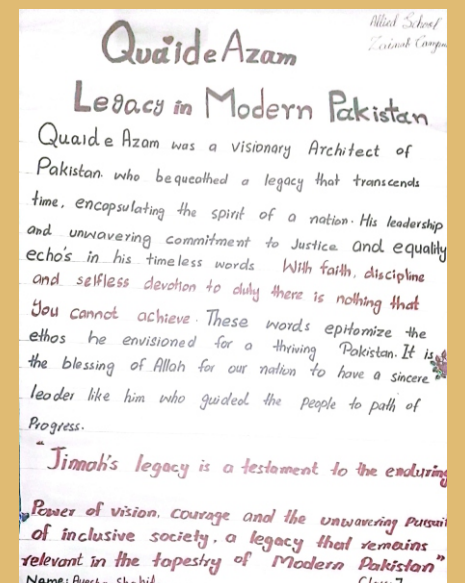 Allied School
Quaide Azam
Legacy in Modern Pakistan
Quaid e Azam was a visionary Architect of
Pakistan. who bequeathed a legacy that transcends
time, encapsulating the spirit of a nation. His leadership
and unwavering commitment to Justice and equality
echo's in his timeless words With faith, discipline
and selfless devotion to duty there is nothing that
you cannot achieve. These words epitomize the
ethos he envisioned for a thriving Pakistan. It is
the blessing of Allah for our nation to have a sincere
leader like him who guided the people to path of
Progress.
"Jinnah's legacy is a testament to the enduring
Power of vision, courage and the unwavering Pursuit
of inclusive society, a legacy that remains
relevant in the tapestry of Modern Pakistan"
Name: Shahid Class: 7